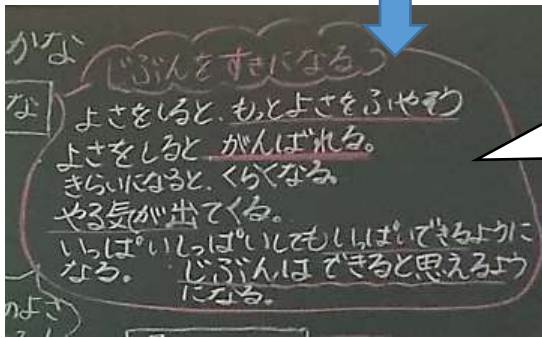 かな
な
じぶんをすきになる
よさをしると、もっとよさをふやそう
よさをしると がんばれる。
きらいになると、くらくなる。
やる気が出てくる。
いっぱいしっぱいしてもいっぱいできるように
なる。 じぶんは できると思えるよう
になる。
のよさ